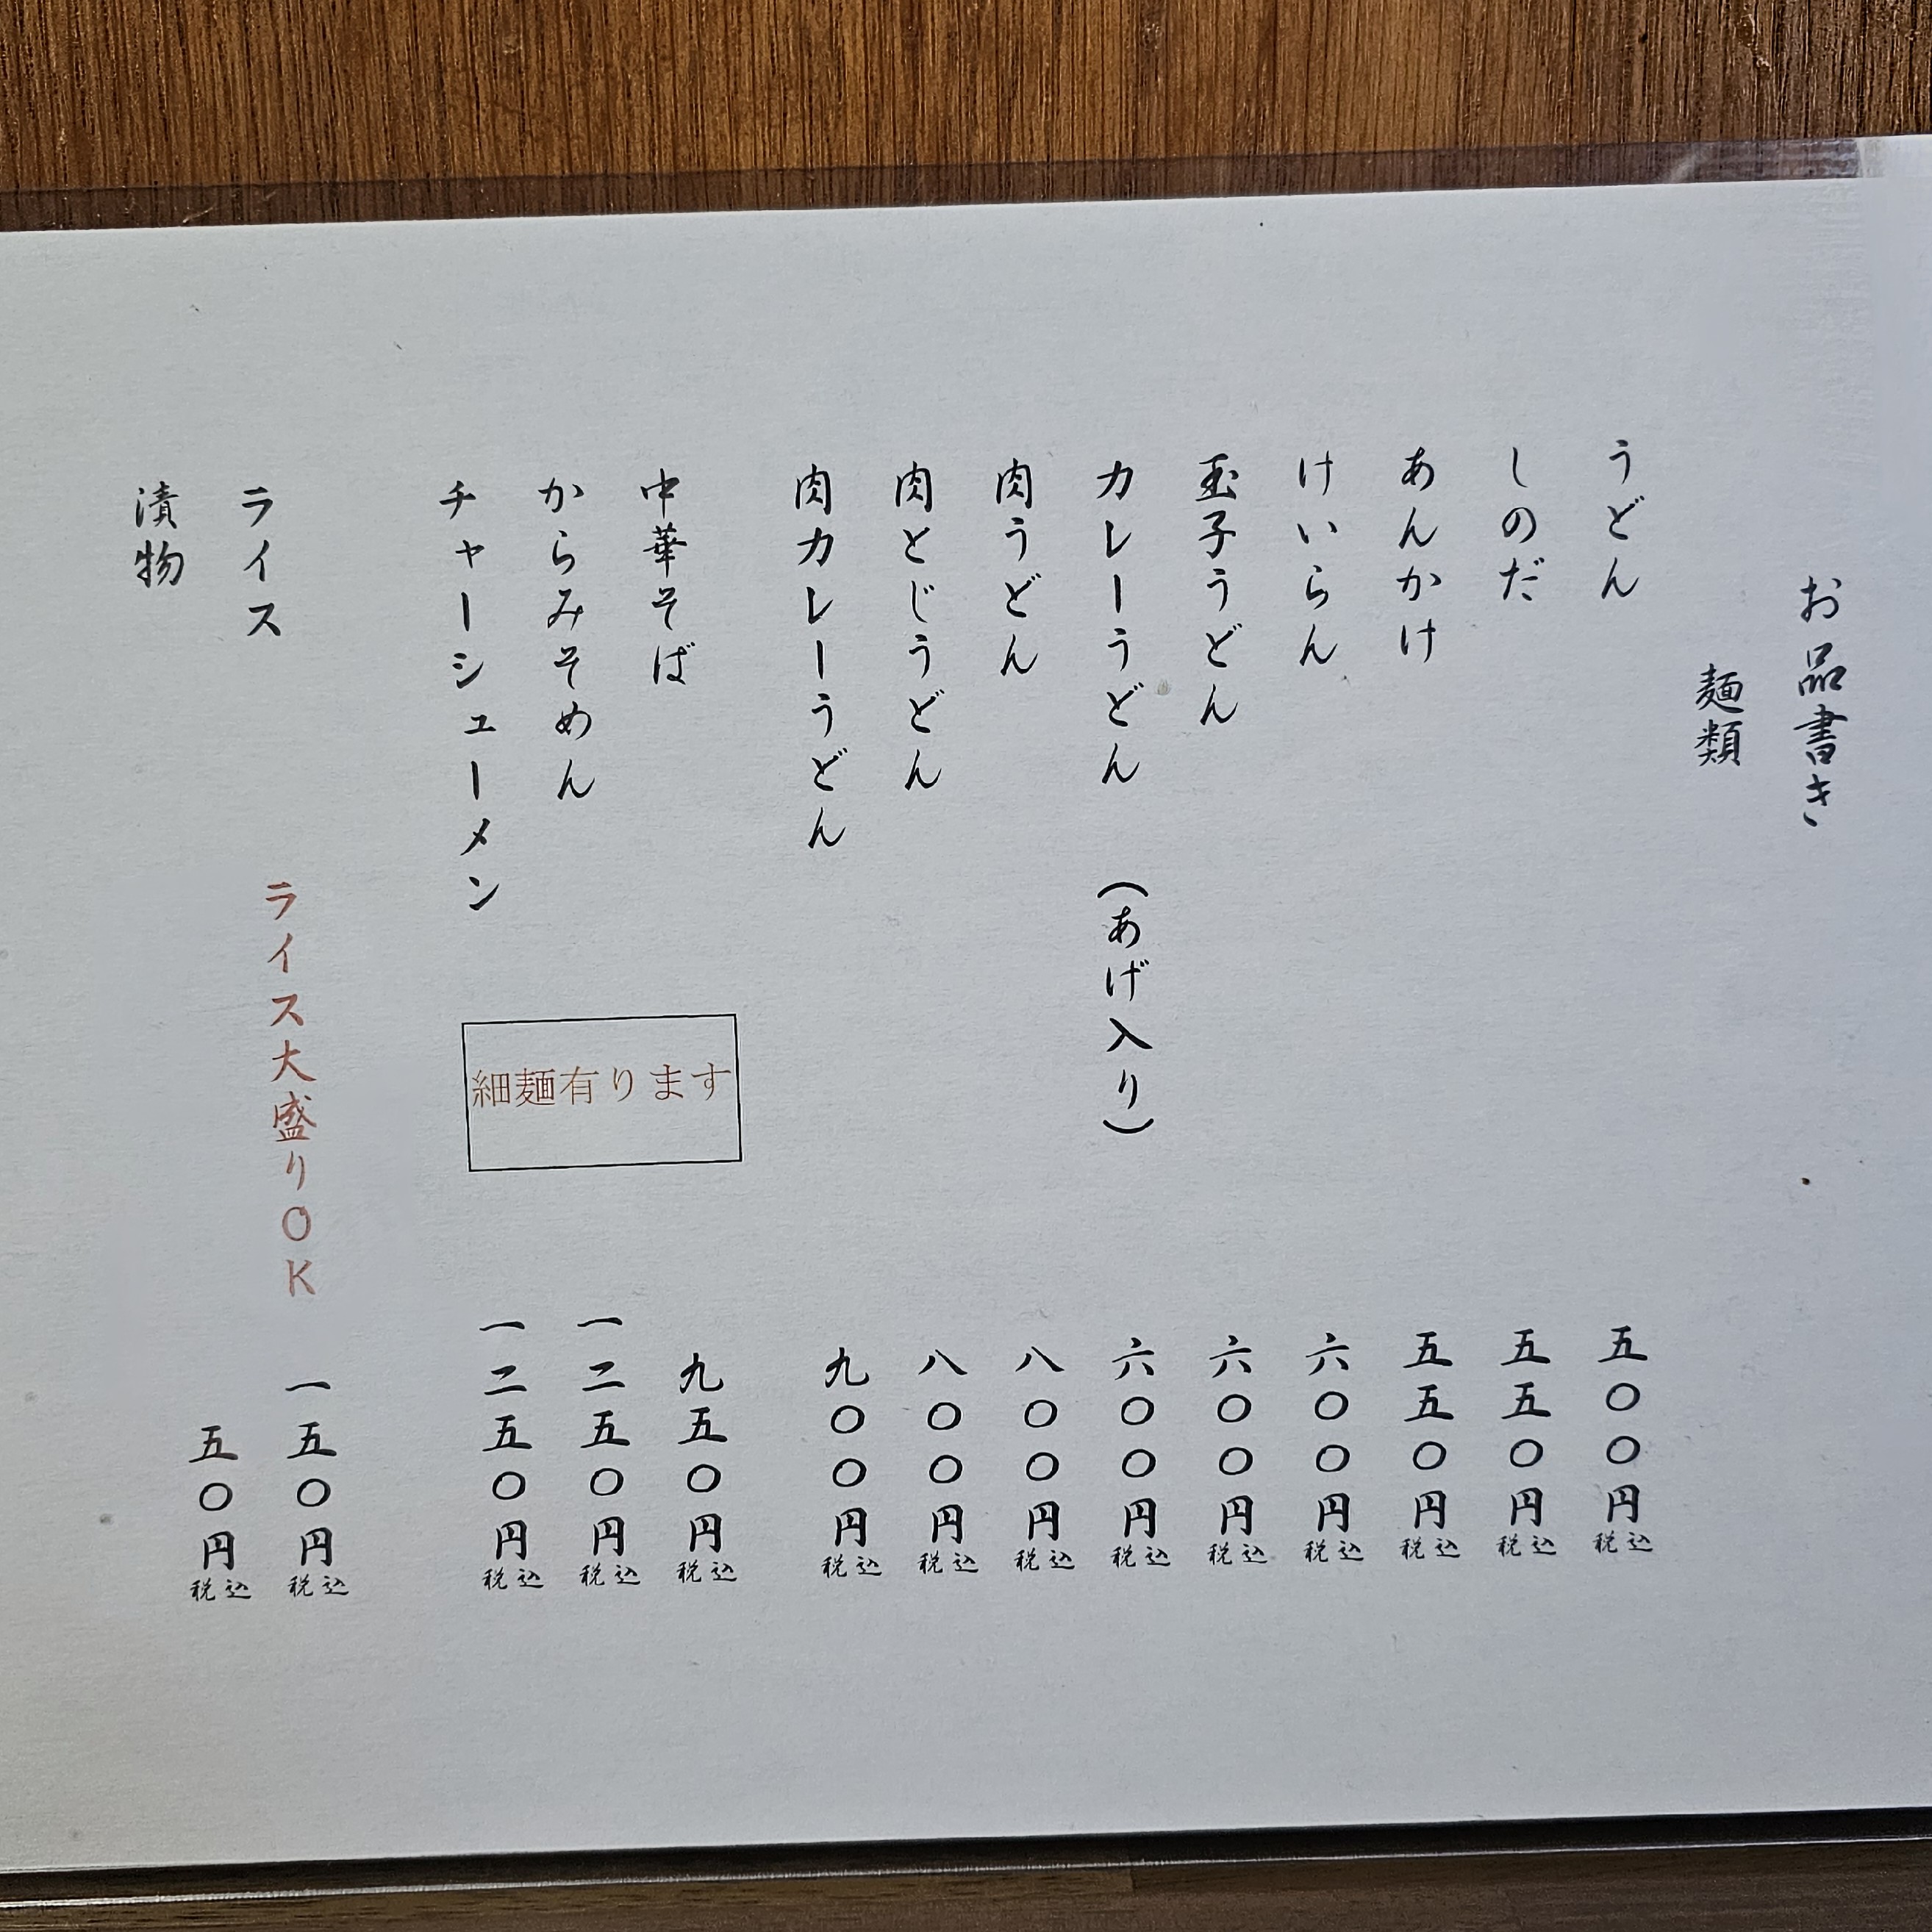 お品書き
麺類
うどん 五〇〇円税込
しのだ 五五〇円税込
あんかけ 五五〇円税込
けいらん 六〇〇円税込
玉子うどん 六〇〇円税込
カレーうどん (あげ入り) 六〇〇円税込
肉うどん 八〇〇円税込
肉とじうどん 八〇〇円税込
肉カレーうどん 九〇〇円税込
中華そば 九五〇円税込
からみそめん 一二五〇円税込
チャーシューメン 一二五〇円税込
細麺有ります
ライス ライス大盛りOK 一五〇円税込
漬物 五〇円税込